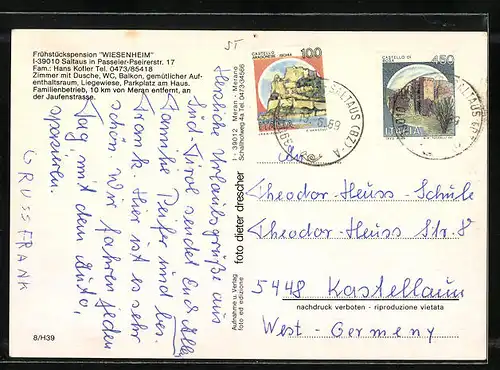 Frühstückspension "WIESENHEIM"
I-39010 Saltaus in Passeier-Pseirerstr. 17
Fam.: Hans Kofler Tel. 0473/85418
Zimmer mit Dusche, WC, Balkon, gemütlicher Auf-
enthaltsraum, Liegewiese, Parkplatz am Haus.
Familienbetrieb, 10 km von Meran entfernt, an
der Jaufenstrasse.
Herzliche Urlaubsgrüße aus
Süd Tirol sendet Euch Allen
Familie Peifer und bes.
Frank. Hier ist es sehr
schön. Wir fahren jeden
Tag mit dem Auto,
spazieren.
GRUSS FRANK
8/H39
Aufnahme u. Verlag
foto ed edizione
foto dieter drescher
I - 39012 Meran - Merano
Schallhofweg 4a Tel. 0473/34566
ST
CASTELLO
ARAGONESE ISCHIA
100
CASTELLO DI
450
ITALIA
SALTAUS (BZ) A
An
Theodor-Heuss-Schule
Theodor-Heuss Str. 8
5448 Kastellaun
nachdruck verboten - riproduzione vietata
West-Germeny